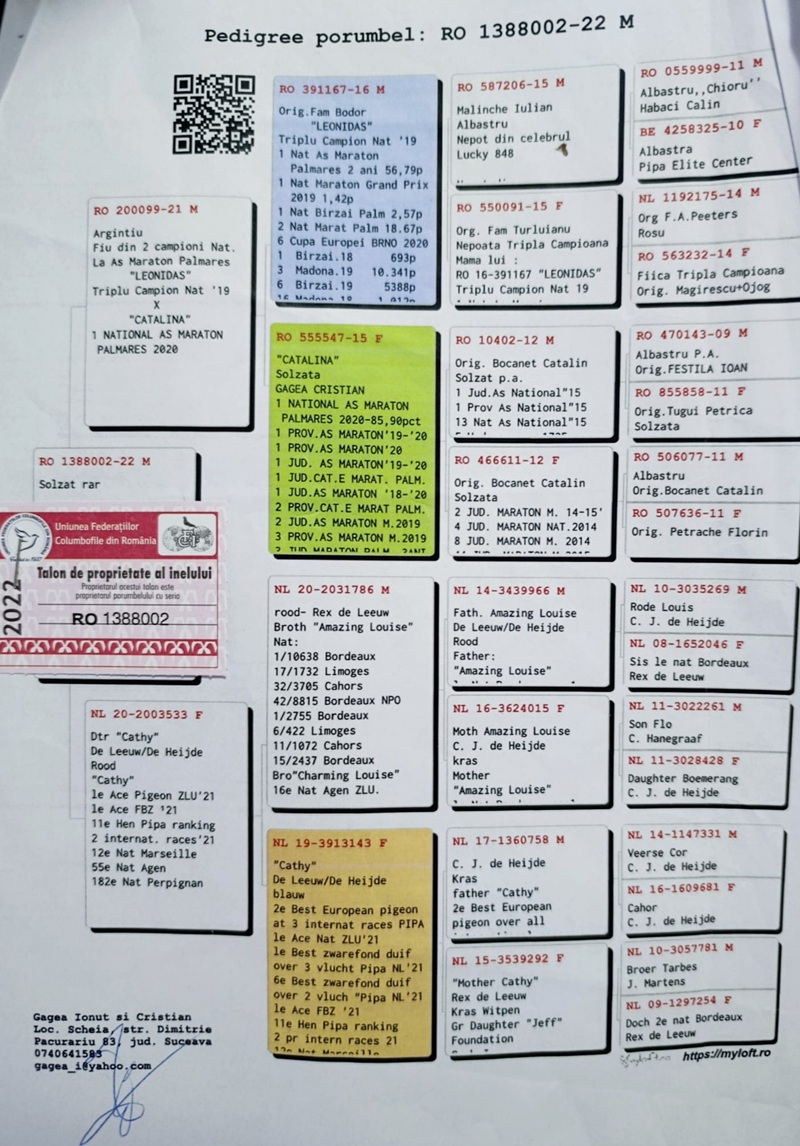 Pedigree porumbel: RO 1388002-22 M
RO 1388002-22 M
Solzat rar
Uniunea Federațiilor
Columbofile din România
Talon de proprietate al inelului
Proprietarul acestui talon este
proprietarul porumbelului cu seria
2022
RO 1388002
RO 200099-21 M
Argintiu
Fiu din 2 campioni Nat.
La As Maraton Palmares
"LEONIDAS"
Triplu Campion Nat '19
X
"CATALINA"
1 NATIONAL AS MARATON
PALMARES 2020
NL 20-2003533 F
Dtr "Cathy"
De Leeuw/De Heijde
Rood
"Cathy"
1e Ace Pigeon ZLU'21
1e Ace FBZ '21
11e Hen Pipa ranking
2 internat. races'21
12e Nat Marseille
55e Nat Agen
182e Nat Perpignan
RO 391167-16 M
Orig.Fam Bodor
"LEONIDAS"
Triplu Campion Nat '19
1 Nat As Maraton
Palmares 2 ani 56,79p
1 Nat Maraton Grand Prix
2019 1,42p
1 Nat Birzai Palm 2,57p
2 Nat Marat Palm 18.67p
6 Cupa Europei BRNO 2020
1 Birzai.18 693p
3 Madona.19 10.341p
6 Birzai.19 5388p
RO 555547-15 F
"CATALINA"
Solzata
GAGEA CRISTIAN
1 NATIONAL AS MARATON
PALMARES 2020-85,90pct
1 PROV.AS MARATON'19-'20
1 PROV.AS MARATON'20
1 JUD. AS MARATON'19-'20
1 JUD.CAT.E MARAT. PALM.
1 JUD.AS MARATON '18-'20
2 PROV.CAT.E MARAT PALM.
2 JUD.AS MARATON M.2019
3 PROV.AS MARATON M.2019
NL 20-2031786 M
rood- Rex de Leeuw
Broth "Amazing Louise"
Nat:
1/10638 Bordeaux
17/1732 Limoges
32/3705 Cahors
42/8815 Bordeaux NPO
1/2755 Bordeaux
6/422 Limoges
11/1072 Cahors
15/2437 Bordeaux
Bro"Charming Louise"
16e Nat Agen ZLU.
NL 19-3913143 F
"Cathy"
De Leeuw/De Heijde
blauw
2e Best European pigeon
at 3 internat races PIPA
1e Ace Nat ZLU'21
1e Best zwarefond duif
over 3 vlucht Pipa NL'21
6e Best zwarefond duif
over 2 vluch "Pipa NL'21
1e Ace FBZ '21
11e Hen Pipa ranking
2 pr intern races 21
RO 587206-15 M
Malinche Iulian
Albastru
Nepot din celebrul
Lucky 848
RO 550091-15 F
Org. Fam Turluianu
Nepoata Tripla Campioana
Mama lui :
RO 16-391167 "LEONIDAS"
Triplu Campion Nat 19
RO 10402-12 M
Orig. Bocanet Catalin
Solzat p.a.
1 Jud.As National"15
1 Prov As National"15
13 Nat As National"15
RO 466611-12 F
Orig. Bocanet Catalin
Solzata
2 JUD. MARATON M. 14-15'
4 JUD. MARATON NAT.2014
8 JUD. MARATON M. 2014
NL 14-3439966 M
Fath. Amazing Louise
De Leeuw/De Heijde
Rood
Father:
"Amazing Louise"
NL 16-3624015 F
Moth Amazing Louise
C. J. de Heijde
kras
Mother
"Amazing Louise"
NL 17-1360758 M
C. J. de Heijde
Kras
father "Cathy"
2e Best European
pigeon over all
NL 15-3539292 F
"Mother Cathy"
Rex de Leeuw
Kras Witpen
Gr Daughter "Jeff"
Foundation
RO 0559999-11 M
Albastru,,Chioru''
Habaci Calin
BE 4258325-10 F
Albastra
Pipa Elite Center
NL 1192175-14 M
Org F.A.Peeters
Rosu
RO 563232-14 F
Fiica Tripla Campioana
Orig. Magirescu+Ojog
RO 470143-09 M
Albastru P.A.
Orig.FESTILA IOAN
RO 855858-11 F
Orig.Tugui Petrica
Solzata
RO 506077-11 M
Albastru
Orig.Bocanet Catalin
RO 507636-11 F
Orig. Petrache Florin
NL 10-3035269 M
Rode Louis
C. J. de Heijde
NL 08-1652046 F
Sis le nat Bordeaux
Rex de Leeuw
NL 11-3022261 M
Son Flo
C. Hanegraaf
NL 11-3028428 F
Daughter Boemerang
C. J. de Heijde
NL 14-1147331 M
Veerse Cor
C. J. de Heijde
NL 16-1609681 F
Cahor
C. J. de Heijde
NL 10-3057781 M
Broer Tarbes
J. Martens
NL 09-1297254 F
Doch 2e nat Bordeaux
Rex de Leeuw
Gagea Ionut si Cristian
Loc. Scheia, str. Dimitrie
Pacurariu 83, jud. Suceava
0740641583
gagea_i@yahoo.com
https://myloft.ro